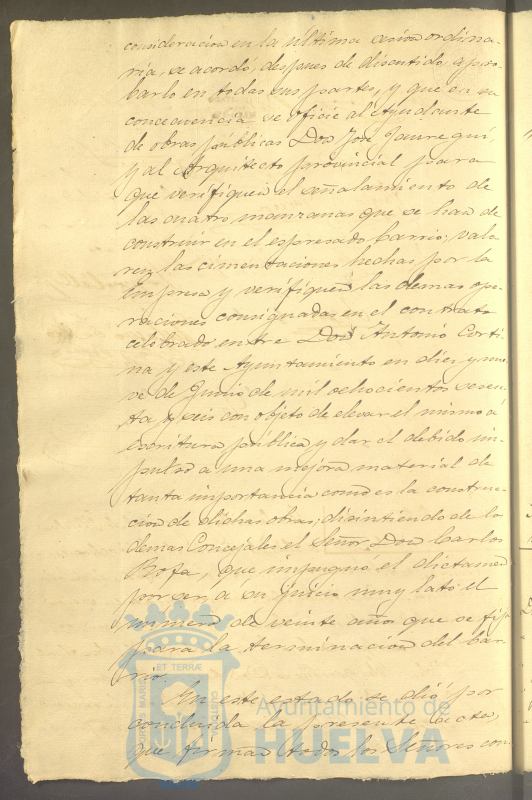 consideracion en la ultima sesion ordina-
ria, se acordó, despues de discutido, apro-
barlo en todas sus partes, y que en su
concecuencia se oficie al Ayudante
de obras públicas Don José Jaure gui,
y al Arquitecto provincial para
que verifiquen el señalamiento de
las cuatro manzanas que se han de
construir en el espresado barrio; valo
ren las cimentaciones hechas por la
Empresa y verifiquen las demas ope-
raciones consignadas en el contrato
celebrado entre Don Antonio Corti
na y este Ayuntamiento en diez y nue-
ve de Junio de mil ochocientos sesen-
ta y seis con objeto de elevar el mismo á
escritura pública y dar el debido im-
pulso a una mejora material de
tanta importancia como es la construc-
cion de dichas obras; disintiendo de los
demas Concejales el Señor Don Carlos
que impugnó el dictamen
por ser, a su juicio muy lato el
número de veinte años que se fija
para la terminacion del bar-
rio.
En este estado se dió por
concluida la presente acta,
que firman todos los Señores con-
ET TERRÆ
Ayuntamiento de
HUELVA